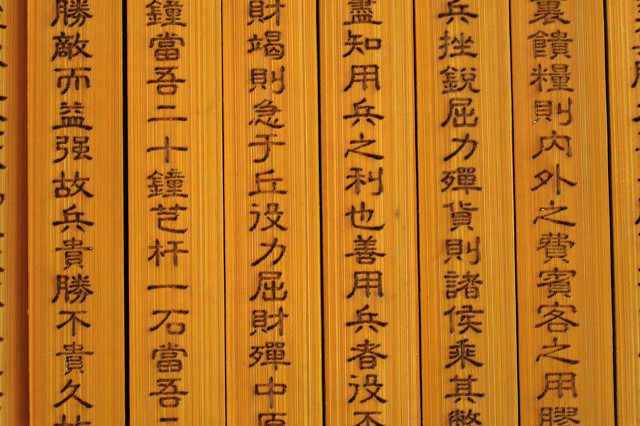 裹饋糧則內外之費賓客之用膠
兵挫銳屈力殫貨則諸侯乘其弊
盡知用兵之利也善用兵者役不
財竭則急于丘役力屈財殫中原
鐘當吾二十鐘芑杆一石當吾二
勝敵而益强故兵貴勝不貴久故